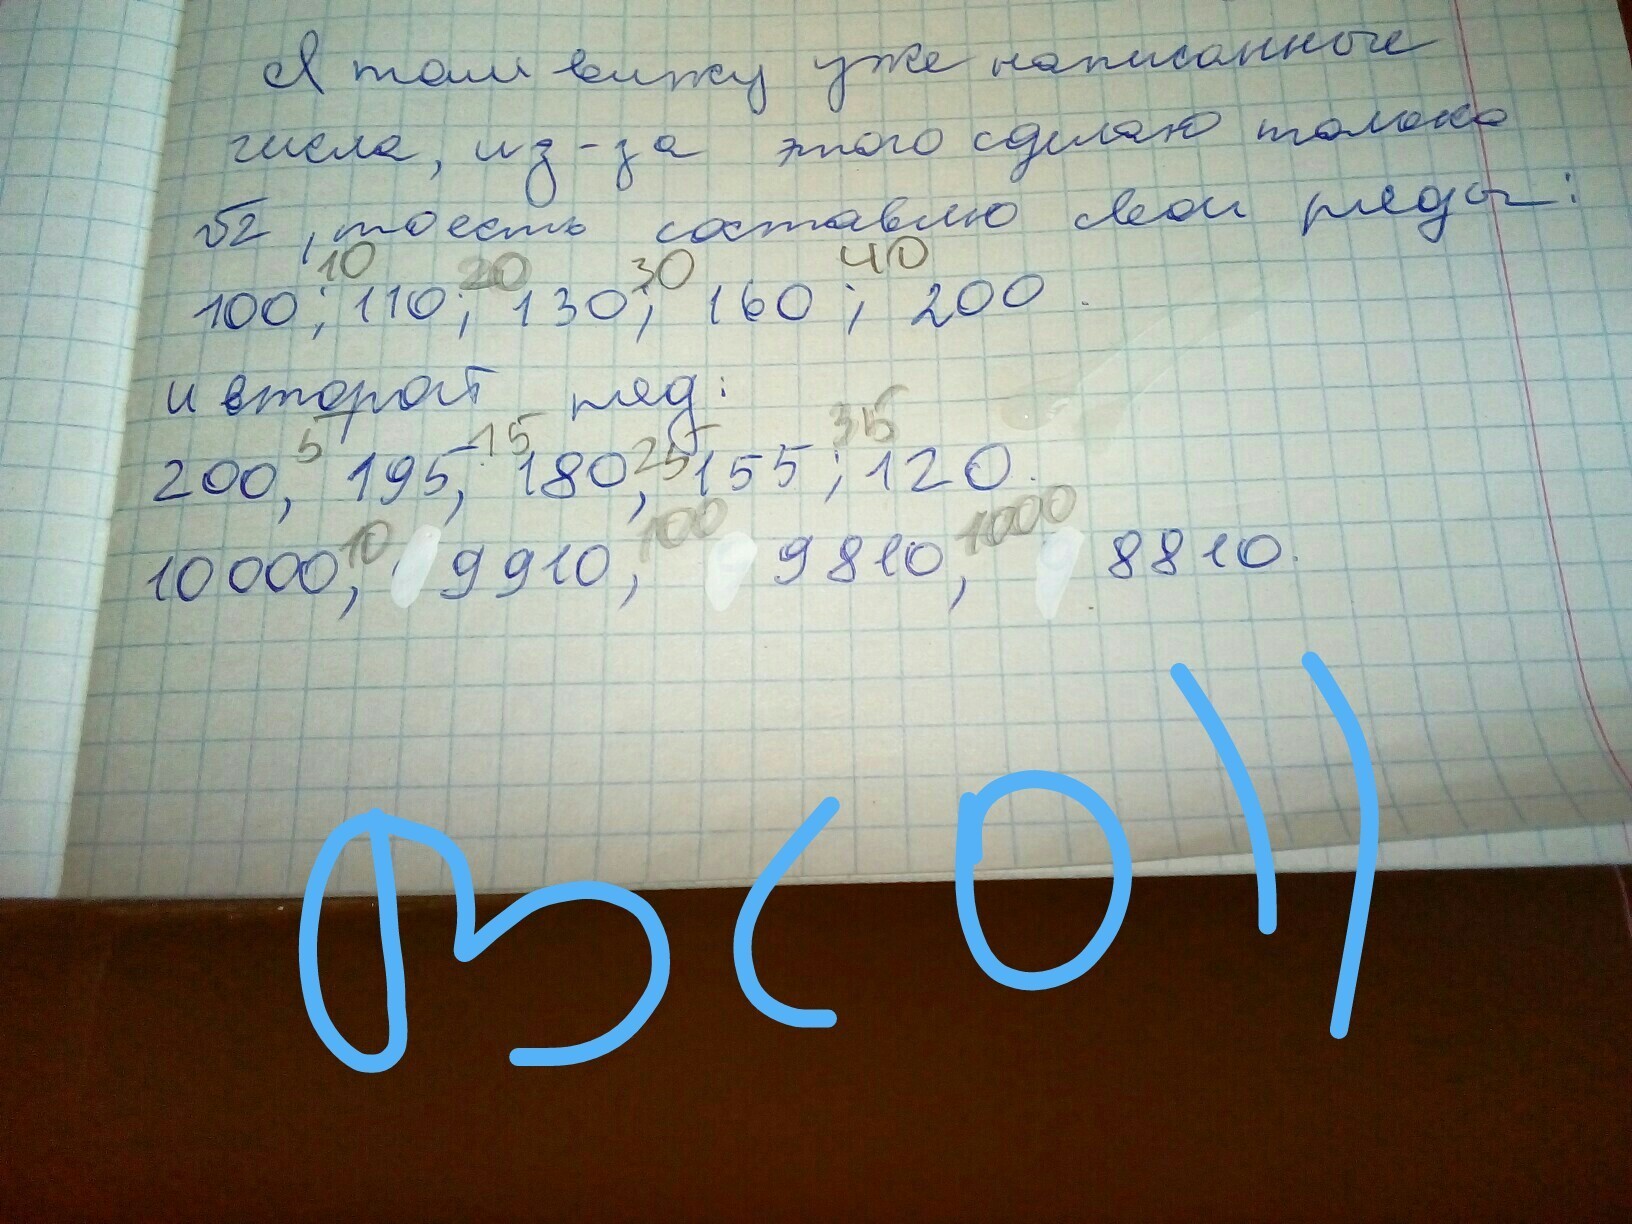 Я там вижу уже написанные
числа, из-за этого сделаю только
√2, тоесть составлю свои ряды:
10 20 30 40
100; 110; 130; 160; 200.
и второй ряд:
5 15 25 35
200, 195, 180, 155; 120.
10 100 1000
10 000, 9910, 9810, 8810.